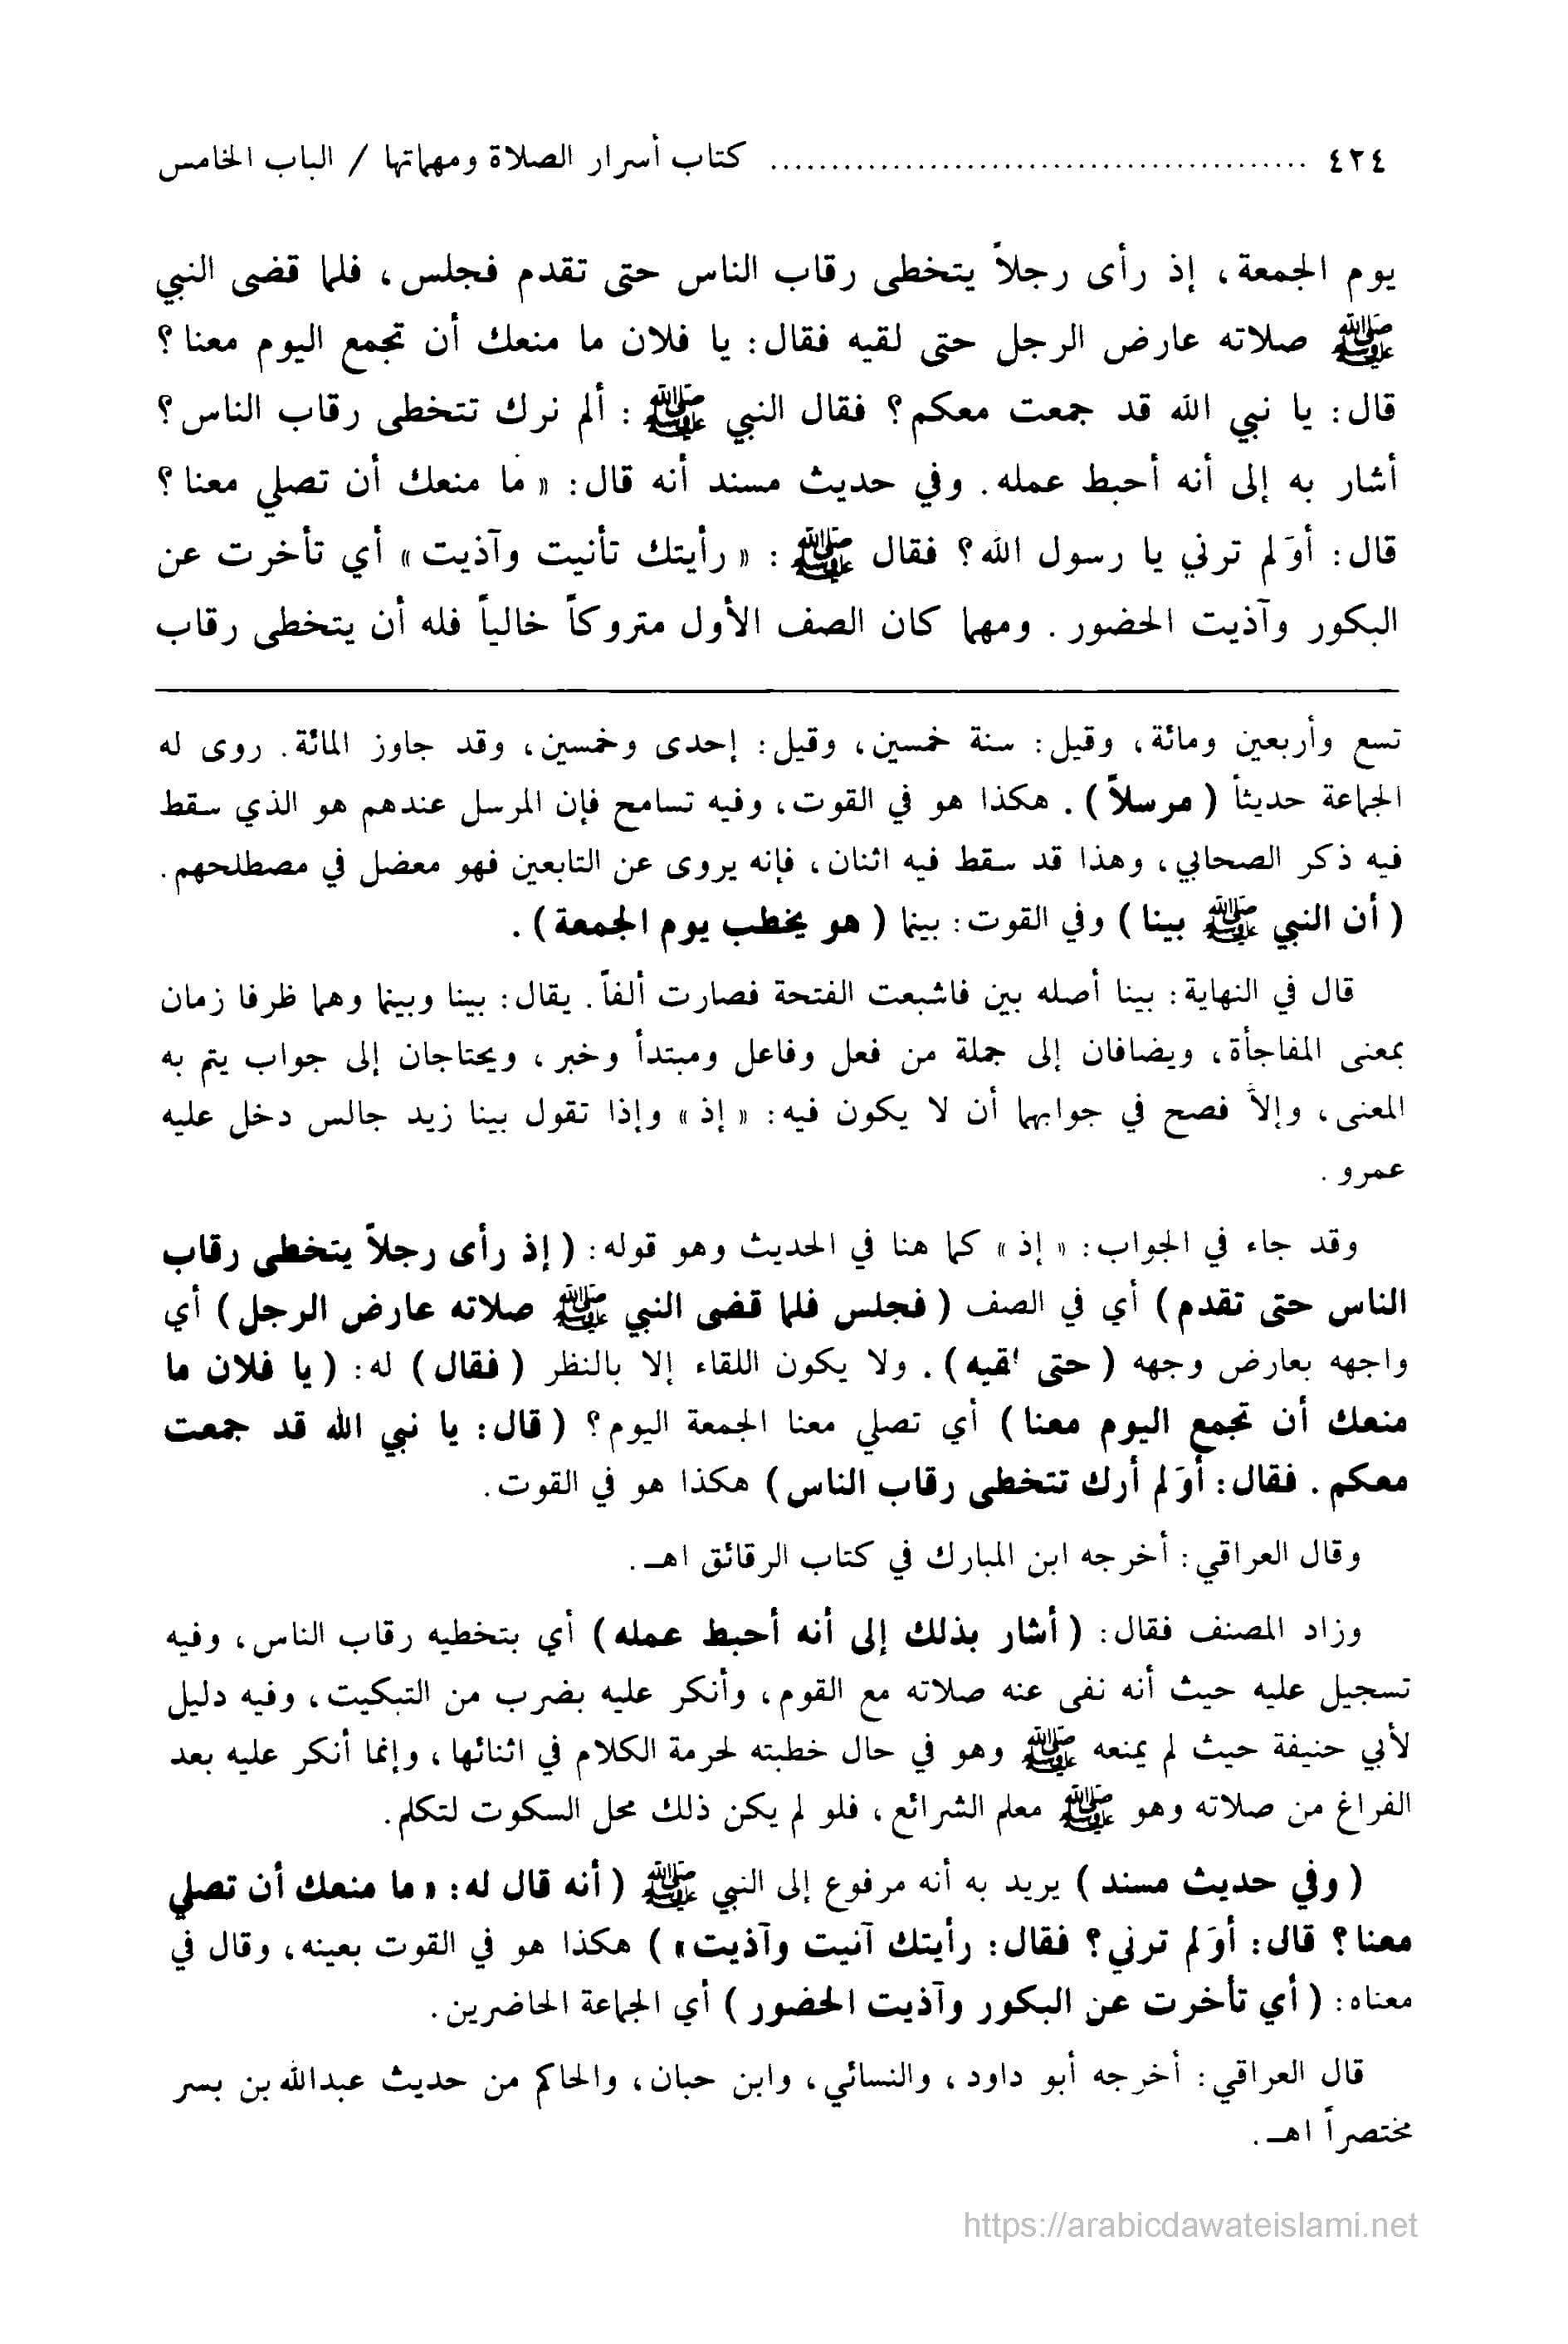 ٤٢٤ ............................................ كتاب أسرار الصلاة ومهماتها / الباب الخامس
يوم الجمعة، إذ رأى رجلاً يتخطى رقاب الناس حتى تقدم فجلس، فلما قضى النبي
ﷺ صلاته عارض الرجل حتى لقيه فقال: يا فلان ما منعك أن تجمع اليوم معنا؟
قال: يا نبي الله قد جمعت معكم؟ فقال النبي ﷺ: ألم نرك تتخطى رقاب الناس؟
أشار به إلى أنه أحبط عمله. وفي حديث مسند أنه قال: «ما منعك أن تصلي معنا؟
قال: أوَلم ترني يا رسول الله؟ فقال ﷺ: «رأيتك تأنيت وآذيت» أي تأخرت عن
البكور وآذيت الحضور. ومهما كان الصف الأول متروكاً خالياً فله أن يتخطى رقاب
تسع وأربعين ومائة، وقيل: سنة خمسين، وقيل: إحدى وخمسين، وقد جاوز المائة. روى له
الجماعة حديثاً (مرسلاً). هكذا هو في القوت، وفيه تسامح فإن المرسل عندهم هو الذي سقط
فيه ذكر الصحابي، وهذا قد سقط فيه اثنان، فإنه يروى عن التابعين فهو معضل في مصطلحهم.
(أن النبي ﷺ بينا) وفي القوت: بينما (هو يخطب يوم الجمعة).
قال في النهاية: بينا أصله بين فاشبعت الفتحة فصارت ألفاً. يقال: بينا وبينما وهما ظرفا زمان
بمعنى المفاجأة، ويضافان إلى جملة من فعل وفاعل ومبتدأ وخبر، ويحتاجان إلى جواب يتم به
المعنى، وإلاّ فصح في جوابهما أن لا يكون فيه: «إذ» وإذا تقول بينا زيد جالس دخل عليه
عمرو.
وقد جاء في الجواب: «إذ» كما هنا في الحديث وهو قوله: (إذ رأى رجلاً يتخطى رقاب
الناس حتى تقدم) أي في الصف (فجلس فلما قضى النبي ﷺ صلاته عارض الرجل) أي
واجهه بعارض وجهه (حتى لقيه). ولا يكون اللقاء إلا بالنظر (فقال) له: (يا فلان ما
منعك أن تجمع اليوم معنا) أي تصلي معنا الجمعة اليوم؟ (قال: يا نبي الله قد جمعت
معكم. فقال: أوَلم أرك تتخطى رقاب الناس) هكذا هو في القوت.
وقال العراقي: أخرجه ابن المبارك في كتاب الرقائق اهـ.
وزاد المصنف فقال: (أشار بذلك إلى أنه أحبط عمله) أي بتخطيه رقاب الناس، وفيه
تسجيل عليه حيث أنه نفى عنه صلاته مع القوم، وأنكر عليه بضرب من التبكيت، وفيه دليل
لأبي حنيفة حيث لم يمنعه ﷺ وهو في حال خطبته لحرمة الكلام في اثنائها، وإنما أنكر عليه بعد
الفراغ من صلاته وهو ﷺ معلم الشرائع، فلو لم يكن ذلك محل السكوت لتكلم.
(وفي حديث مسند) يريد به أنه مرفوع إلى النبي ﷺ (أنه قال له: «ما منعك أن تصلي
معنا؟ قال: أوَلم ترني؟ فقال: رأيتك آنيت وآذيت») هكذا هو في القوت بعينه، وقال في
معناه: (أي تأخرت عن البكور وآذيت الحضور) أي الجماعة الحاضرين.
قال العراقي: أخرجه أبو داود، والنسائي، وابن حبان، والحاكم من حديث عبدالله بن بسر
مختصراً اهـ.
https://arabicdawateislami.net